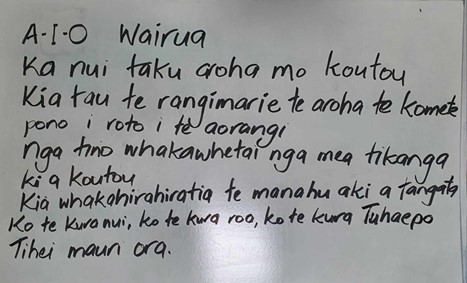 A-I-O Wairua
Ka nui taku aroha mo koutou
Kia tau te rangimarie te aroha te komete
pono i roto i te aorangi
nga tino whakawhetai nga mea tikanga
ki a koutou
Kia whakahirahiratia te manahu aki a tangata
Ko te kura nui, ko te kura roa, ko te kura Tuhaepo
Tihei maun ora.